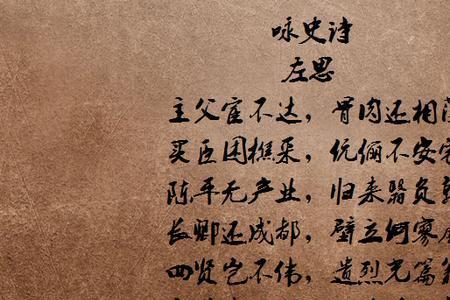 咏史诗
左思
主父宦不达，骨肉还相薄
买臣困樵采，伉俪不安宅
陈平无产业，归来翳负郭
长卿还成都，壁立何寥廓
四贤岂不伟，遗烈光篇籍